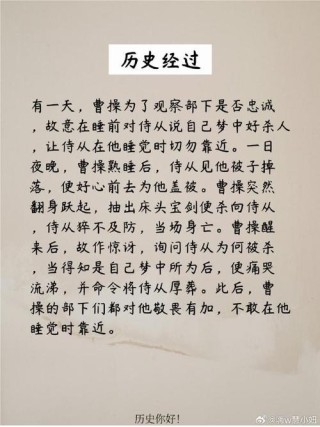 历史经过
有一天，曹操为了观察部下是否忠诚
，故意在睡前对侍从说自己梦中好杀人
，让侍从在他睡觉时切勿靠近。一日
夜晚，曹操熟睡后，侍从见他被子掉
落，便好心前去为他盖被。曹操突然
翻身跃起，抽出床头宝剑便杀向侍从
，侍从猝不及防，当场身亡。曹操醒
来后，故作惊讶，询问侍从为何被杀
，当得知是自己梦中所为后，便痛哭
流涕，并命令将侍从厚葬。此后，曹
操的部下们都对他敬畏有加，不敢在他
睡觉时靠近。
历史你好！